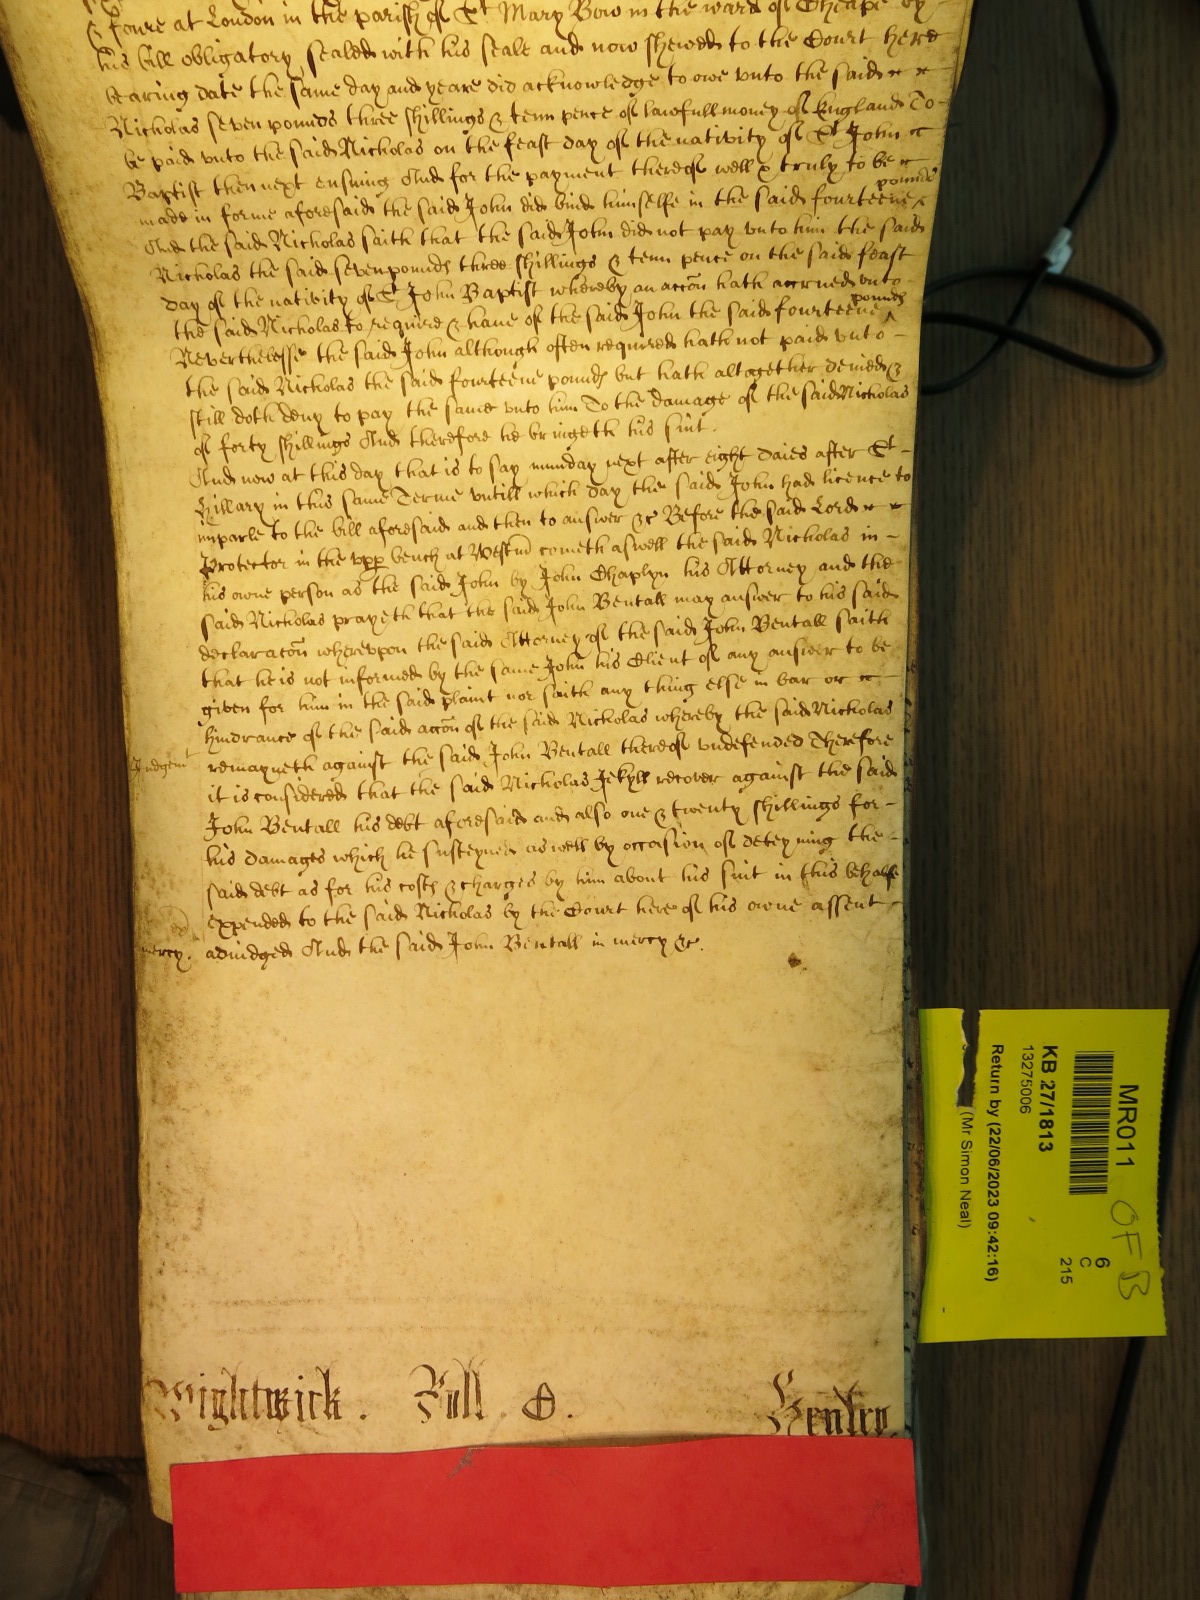 & fowre at London in the parish of St Mary Bow in the ward of Cheape by
his bill obligatory sealed with his seale and now shewed to the Court here
bearing date the same day and yeare did acknowledge to owe vnto the said
Nicholas seven pounds three shillings & tenn pence of lawfull money of England To
be paid vnto the said Nicholas on the feast day of the nativity of St John
Baptist then next ensuing And for the payment thereof well & truly to be
made in forme aforesaid the said John did bind himselfe in the said fourteene pounds
And the said Nicholas saith that the said John did not pay vnto him the said
Nicholas the said seven pounds three shillings & tenn pence on the said feast
day of the nativity of St John Baptist whereby an accon hath accrued vnto
the said Nicholas to require & haue of the said John the said fourteene pounds
Neverthelesse the said John although often required hath not paid vnto
the said Nicholas the said fourteene pounds but hath altogether denied &
still doth deny to pay the same vnto him To the damage of the said Nicholas
of forty shillings And therefore he bringeth his suit.
And now at this day that is to say munday next after eight daies after St
Hillary in this same Terme vntill which day the said John had licence to
imparle to the bill aforesaid and then to answer &c Before the said Lord
Protector in the vpp bench at Westm cometh aswell the said Nicholas in
his owne person as the said John by John Chaplyn his Attorney and the
said Nicholas prayeth that the said John Bentall may answer to his said
declaracon wherevpon the said Attorney of the said John Bentall saith
that he is not informed by the same John his Client of any answer to be
given for him in the said plaint nor saith any thing else in bar or
hindrance of the said accon of the said Nicholas whereby the said Nicholas
Judgemt remayneth against the said John Bentall thereof vndefended Therefore
it is considered that the said Nicholas Jekyll recover against the said
John Bentall his debt aforesaid and also one & twenty shillings for
his damages which he susteyned as well by occasion of deteyning the
said debt as for his costs & charges by him about his suit in this behalfe
expended to the said Nicholas by the Court here of his owne assent
mercy. adiudged And the said John Bentall in mercy &c.
Wightwick. Rull. O. Henley.
MR011
OF B
6
C
215
KB 27/1813
13275006
Return by (22/06/2023 09:42:16)
(Mr Simon Neal)